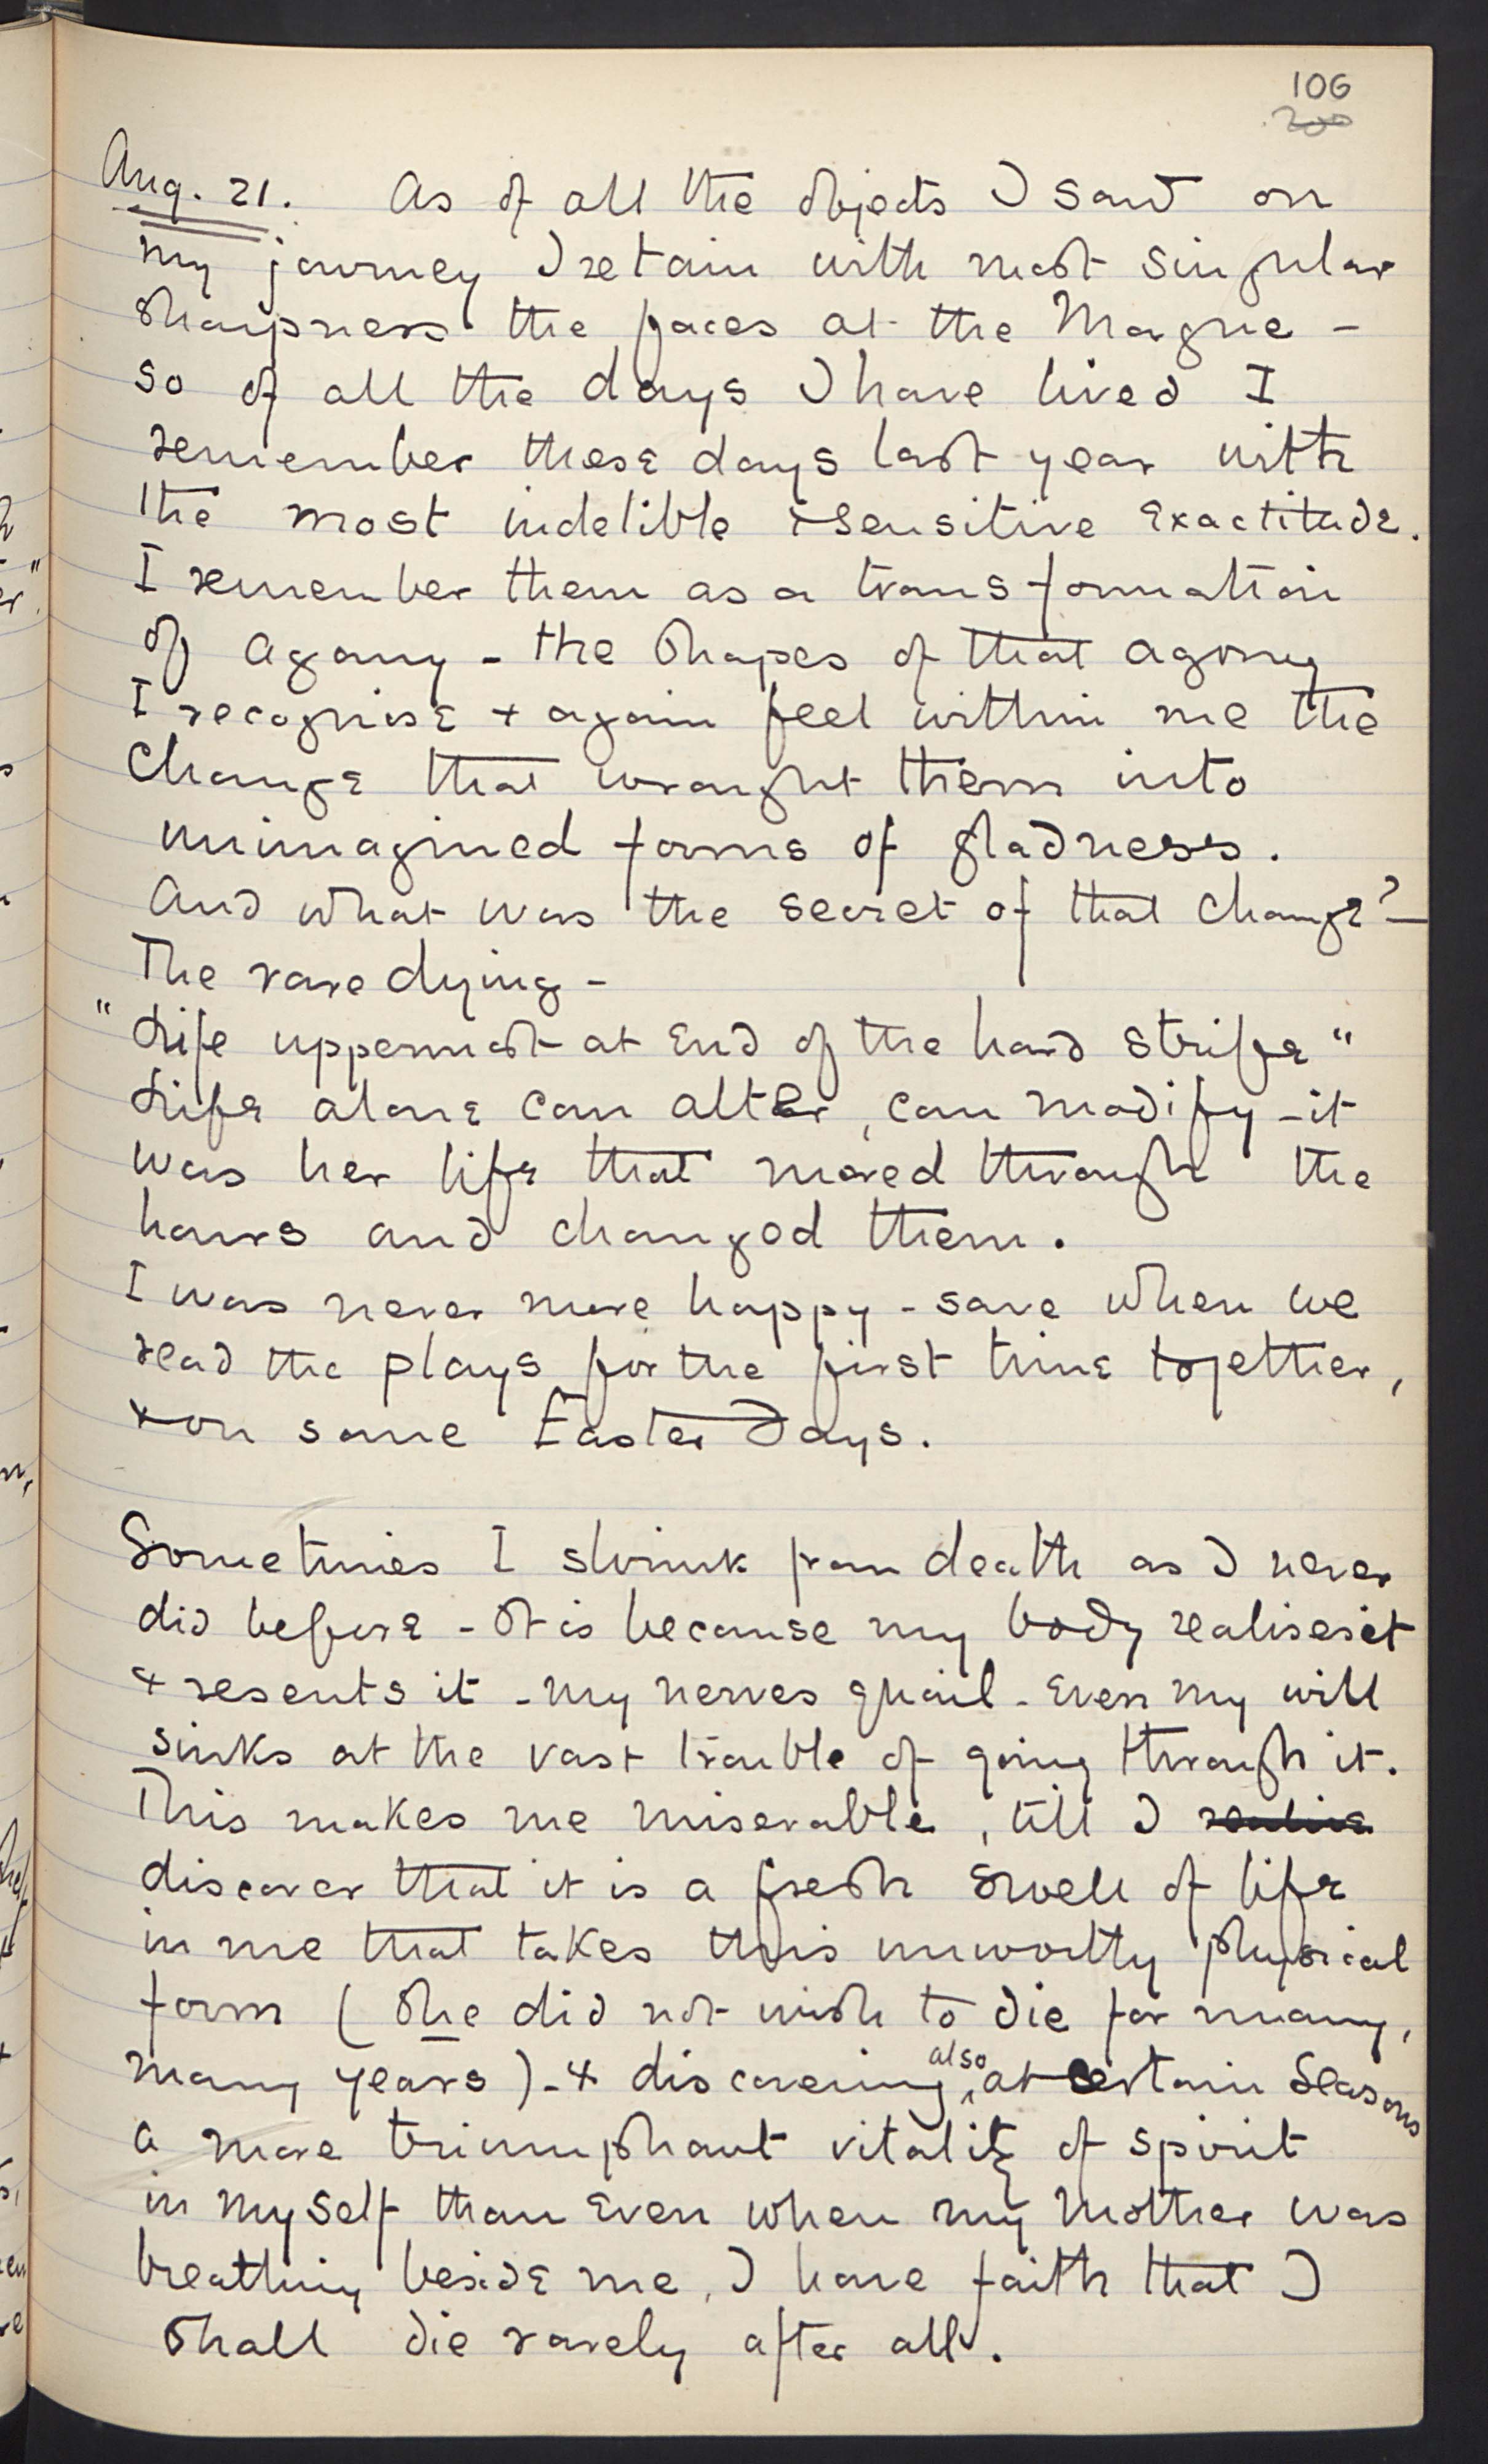 106
200
Aug. 21. As of all the objects I saw on
my journey I retain with most singular
sharpness the faces at the Morgue -
so of all the days I have lived I
remember these days last year with
the most indelible & sensitive exactitude.
I remember them as a transformation
of agony - the shapes of that agony
I recognise & again feel within me the
change that wrought them into
unimagined forms of gladness.
And what was the secret of that change? -
The rare dying -
"Life uppermost at end of the hard strife"
Life alone can alter, can modify - it
was her life that moved through the
hours and changed them.
I was never more happy - save when we
read the plays for the first time together,
& on some Easter Days.
Sometimes I shrink from death as I never
did before - It is because my body realises it
& resents it - my nerves quail - even my will
sinks at the vast trouble of going through it.
This makes me miserable, till I realise
discover that it is a fresh swell of life
in me that takes this unworthy physical
form (She did not wish to die for many,
many years) - & discovering also at certain seasons
a more triumphant vitality of spirit
in myself than even when my mother was
breathing beside me, I have faith that I
shall die rarely after all.